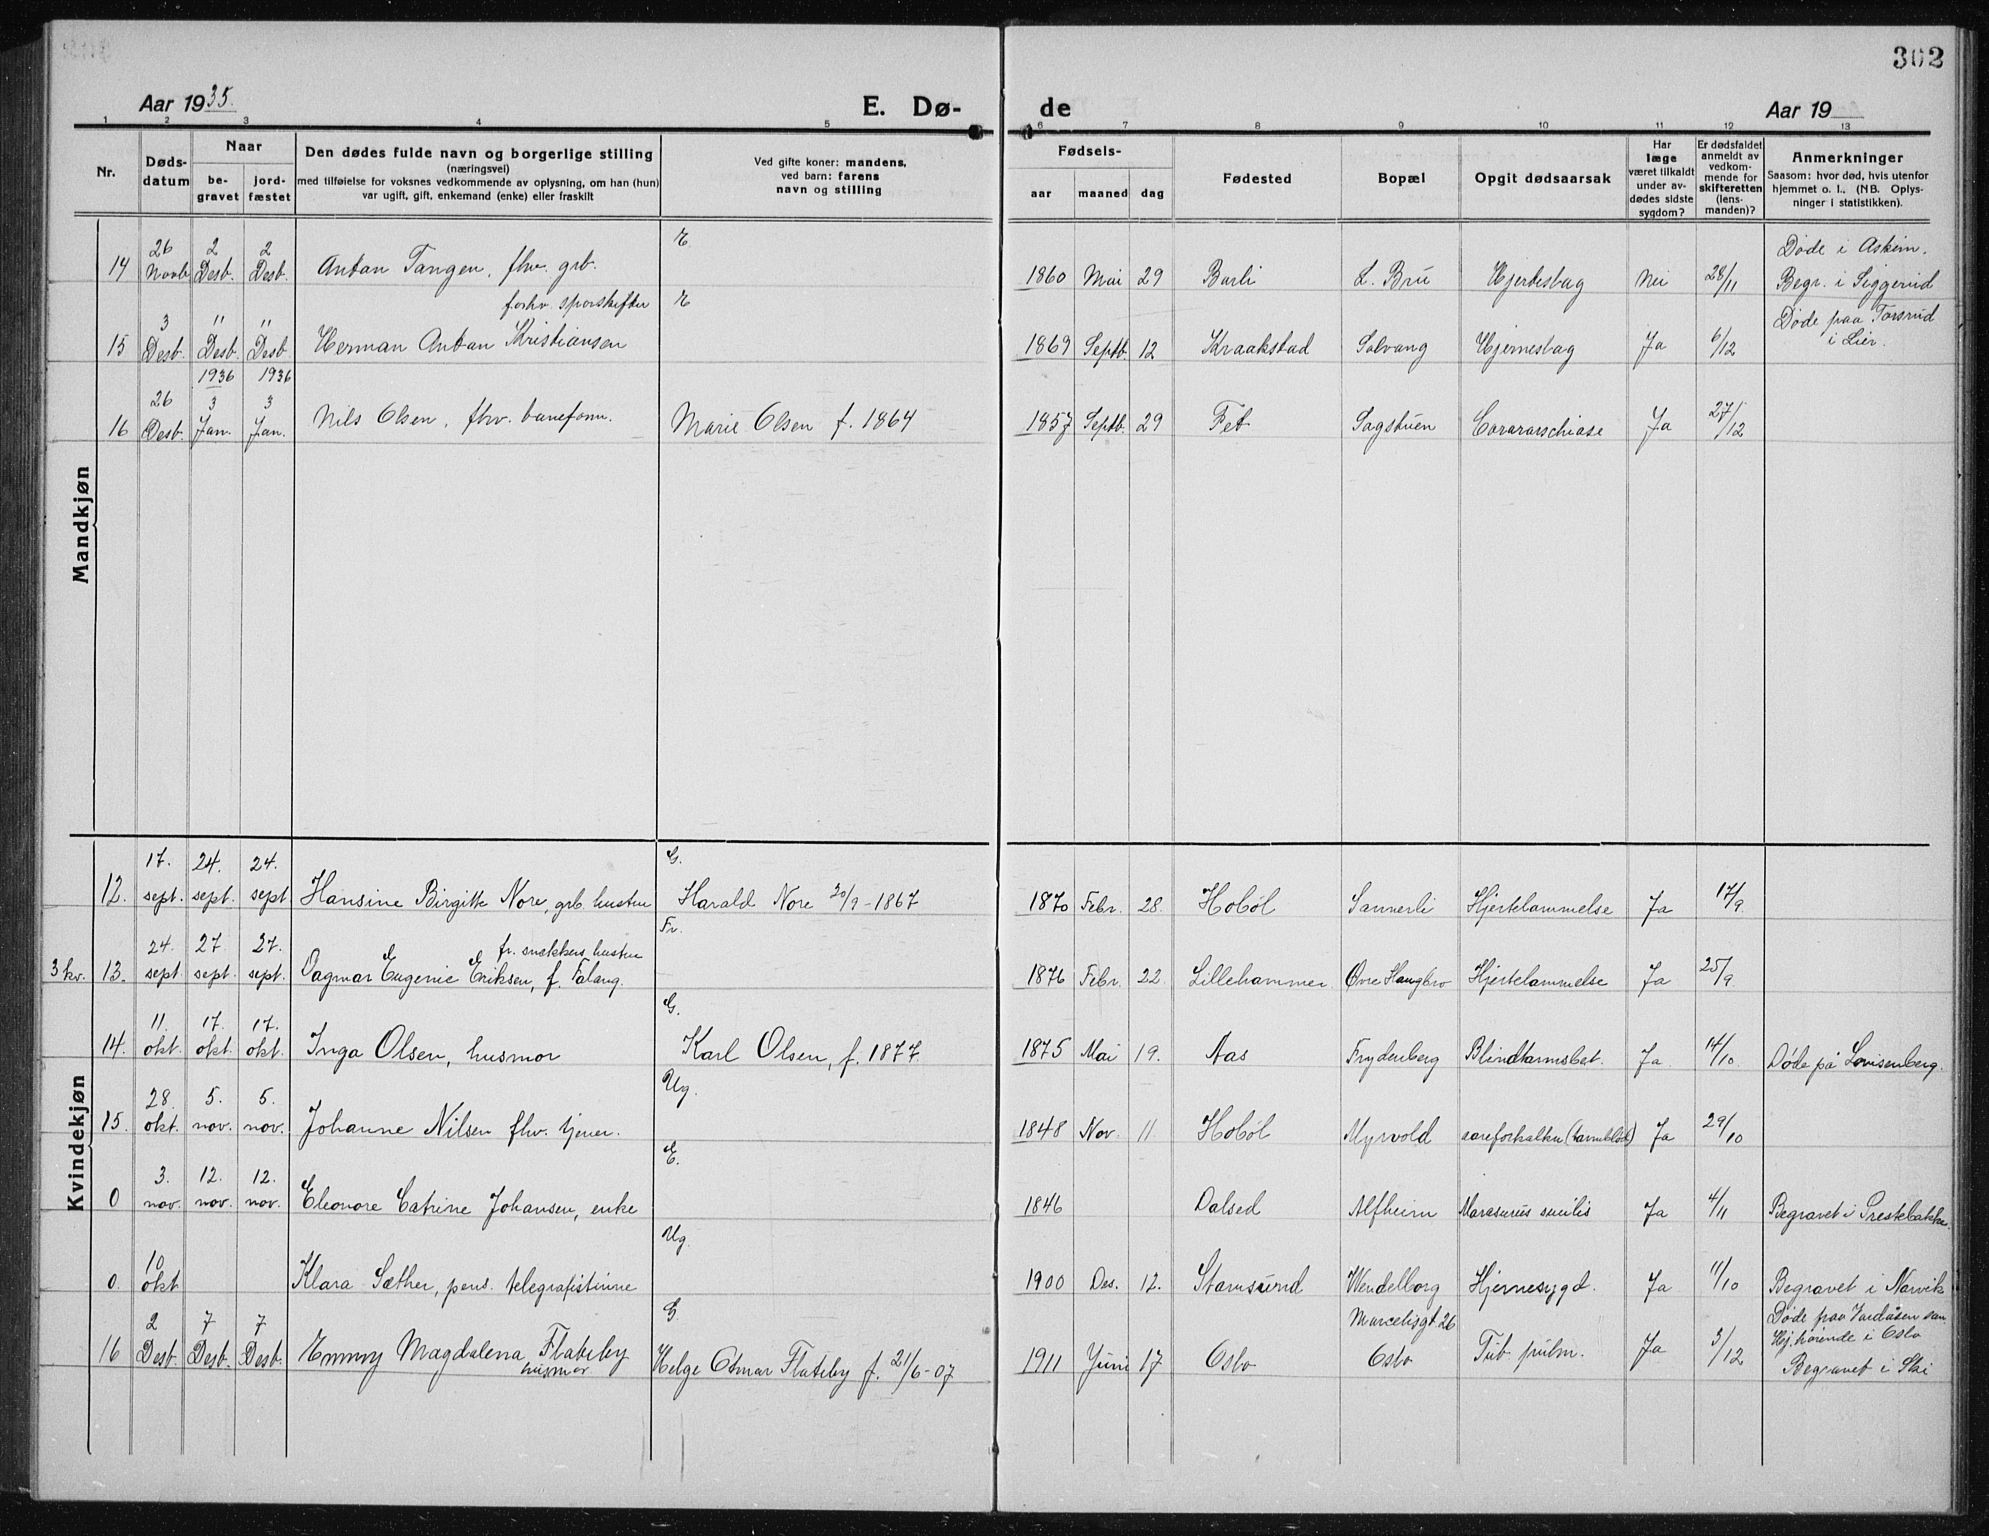 302
Aar 1935.
E. Dø-
de
Aar 19
1 2 3 4 5 6 7 8 9 10 11 12 13
Nr.
Døds-
datum
Naar
be-
gravet
jord-
fæstet
Den dødes fulde navn og borgerlige stilling
(næringsvei)
med tilføielse for voksnes vedkommende av oplysning, om han (hun)
var ugift, gift, enkemand (enke) eller fraskilt
Ved gifte koner: mandens,
ved barn: farens
navn og stilling
Fødsels-
aar maaned dag
Fødested
Bopæl
Opgit dødsaarsak
Har
læge
været tilkaldt
under av-
dødes sidste
sygdom?
Er dødsfaldet
anmeldt av
vedkom-
mende for
skifteretten
(lens-
manden)?
Anmerkninger
Saasom: hvor død, hvis utenfor
hjemmet o. l., (NB. Oplys-
ninger i statistikken).
Mandkjøn
14 26 Novb. 2 Desb. 2 Desb. Anton Tangen, fhv. grb. E 1860 Mai 29 Barli L. Bru Hjerteslag Nei 28/11 Døde i Askim.
Begr. i Siggerud
15 3 Desb. 11 Desb. 11 Desb. forhv. sporskifter
Herman Anton Kristiansen E 1869 Septb. 12 Kraakstad Solvang Hjerneslag Ja 6/12 Døde paa Torsrud
i Lier.
16 26 Desb. 1936 3 Jan. 1936 3 Jan. Nils Olsen, fhv. baneform. Marie Olsen f. 1864 1857 Septb. 29 Fet Sagstuen Ja 27/12
Kvindekjøn
12. 17. sept. 24. sept. 24. sept Hansine Birgitte Nore, grb. hustru G. Harald Nore 20/9-1867 1870 Febr. 28. Hobøl Sannerli Hjertelammelse Ja 17/9
3 kv. 13. 24. sept 27 sept. 27. sept. fr. snekkers hustru
Dagmar Eugenie Eriksen, f. Falang. Fr. 1876 Febr. 22. Lillehammer Øvre Haugbro Hjertelammelse Ja 25/9
14. 11. okt. 17. okt. 17. okt. Inga Olsen, husmor G. Karl Olsen, f. 1877 1875 Mai 19. Aas Frydenberg Blindtarmsbet. Ja 14/10 Døde på Lovisenberg.
15. 28. okt. 5. nov. 5. nov. Johanne Nilsen fhv. tjener. Ug. 1848 Nov. 11. Hobøl Myrvold Ja 29/10
0 3. nov. 12. nov. 12. nov. Eleonore Catrine Johansen, enke E. 1846 Dalsed Alfheim Marasmus senilis Ja 4/11 Begravet i Prestebakke.
0. 10 okt Klara Sæther, pens. telegrafistinne Ug. 1900 Des. 12. Stamsund Wendelborg Hjernesygd. Ja 11/10 Begravet i Narvik
16 2 Desb. 7 Desb. 7 Desb. Emmy Magdalena Flateby
husmor G. Helge Otmar Flateby f. 21/6-07 1911 Juni 17 Oslo Marcelisgt 26
Oslo Tub. pulm. Ja 3/12 Døde paa Vardåsen san.
Hj.hørende i Oslo
Begravet i Ski